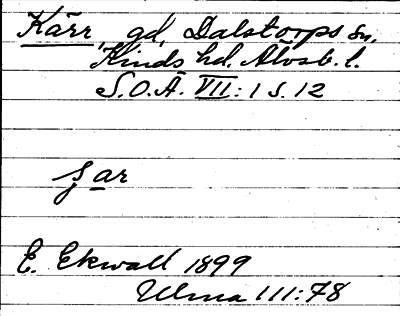 Kärr, gd, Dalstorps sn,
Kinds hd. Älvsb. l.
S.O.Ä. VII: 1 s. 12
ş ar
E. Ekwall 1899
Ulma 111:78